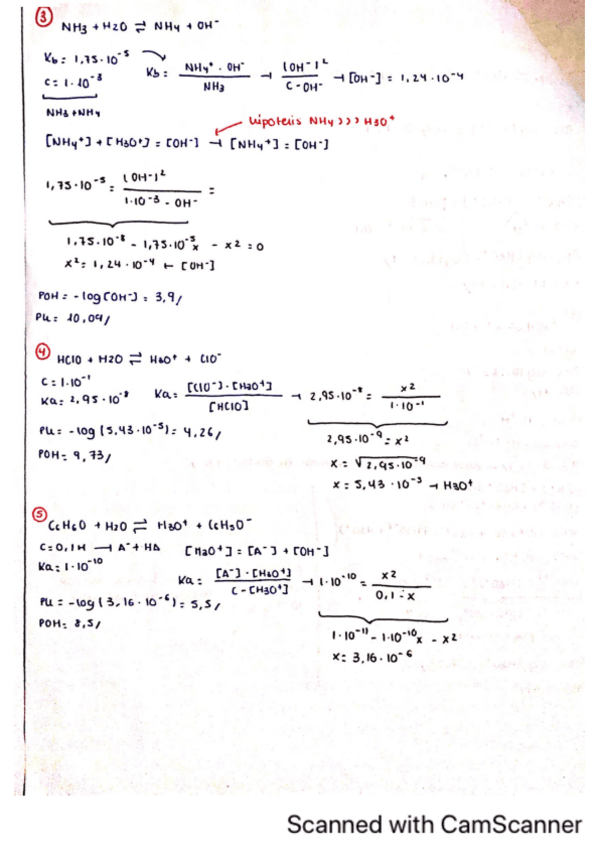 ③ NH3 + H2O ⇌ NH4 + OH-
Kb = 1,75·10^-5
C = 1·10^-3
NH3 + NH4
Kb = NH4+ · OH- / NH3 → [OH-]^2 / C - OH- → [OH-] = 1,24·10^-4
hipótesis NH4 >>> H3O+
[NH4+] + [H3O+] = [OH-] → [NH4+] = [OH-]
1,75·10^-5 = [OH-]^2 / 1·10^-3 - OH- =
1,75·10^-8 - 1,75·10^-5 x - x2 = 0
x2 = 1,24·10^-4 ← [OH-]
POH = -log[OH-] = 3,9/
PH = 10,09/
④ HClO + H2O ⇌ H3O+ + ClO-
C = 1·10^-1
Ka = 2,95·10^-8
Ka = [ClO-]·[H3O+] / [HClO] → 2,95·10^-8 = x2 / 1·10^-1
PH = -log(5,43·10^-5) = 4,26/
POH = 9,73/
2,95·10^-9 = x2
x = √2,95·10^-9
x = 5,43·10^-3 → H3O+
⑤ C6H6O + H2O ⇌ H3O+ + C6H5O-
C = 0,1M → A- + HA
[H3O+] = [A-] + [OH-]
Ka = 1·10^-10
Ka = [A-]·[H3O+] / C - [H3O+] → 1·10^-10 = x2 / 0,1 - x
PH = -log(3,16·10^-6) = 5,5/
POH = 8,5/
1·10^-11 - 1·10^-10 x - x2
x = 3,16·10^-6
Scanned with CamScanner